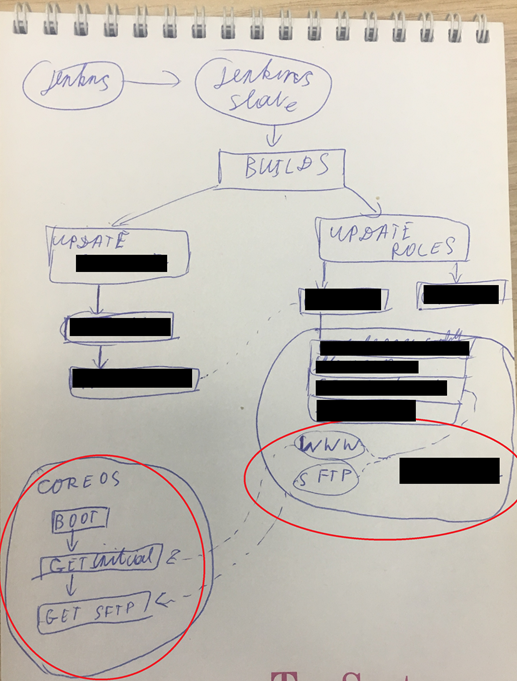 Jenkins
Jenkins
slave
BUILDS
UPDATE
UPDATE
ROLES
WWW
SFTP
COREOS
BOOT
GET initial
GET SFTP